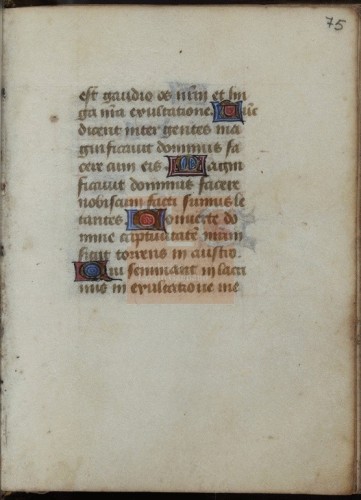 75
est gaudio os nrm et lin
gua nra exultatione Tūc
dicent inter gentes ma
gnificauit dominus fa
cere cum eis Magni
ficauit dominus facere
nobiscum facti sumus le
tantes Conuerte do
mine captiuitatē nram
sicut torrens in austro.
Qui seminant in lacri
mis in exultatione me